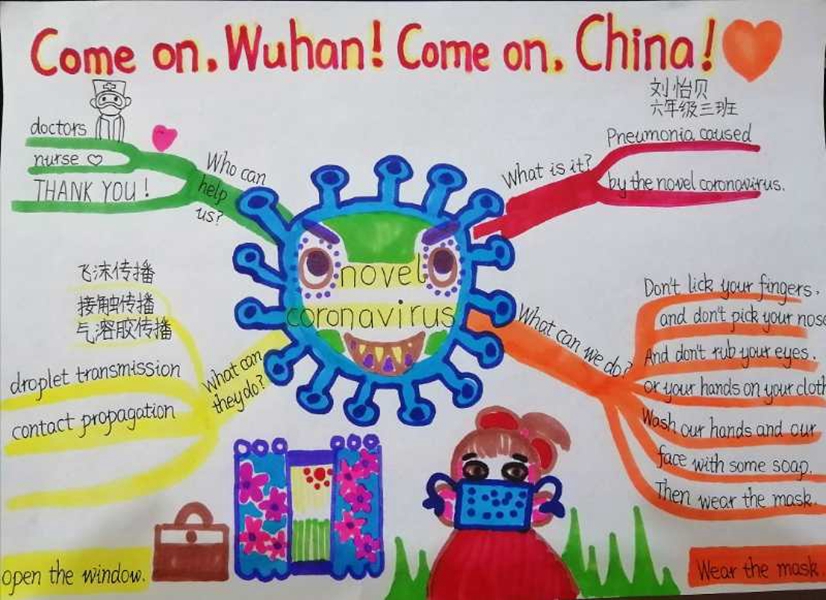 Come on, Wuhan! Come on, China!
刘怡贝
六年级三班
doctors
nurse
THANK YOU!
Who can
help
us?
What is it?
Pneumonia caused
by the novel coronavirus.
novel
coronavirus
飞沫传播
接触传播
气溶胶传播
droplet transmission
contact propagation
what can
they do?
What can we do?
Don't lick your fingers,
and don't pick your nose
And don't rub your eyes.
or your hands on your cloth
Wash our hands and our
face with some soap.
Then wear the mask.
open the window.
Wear the mask